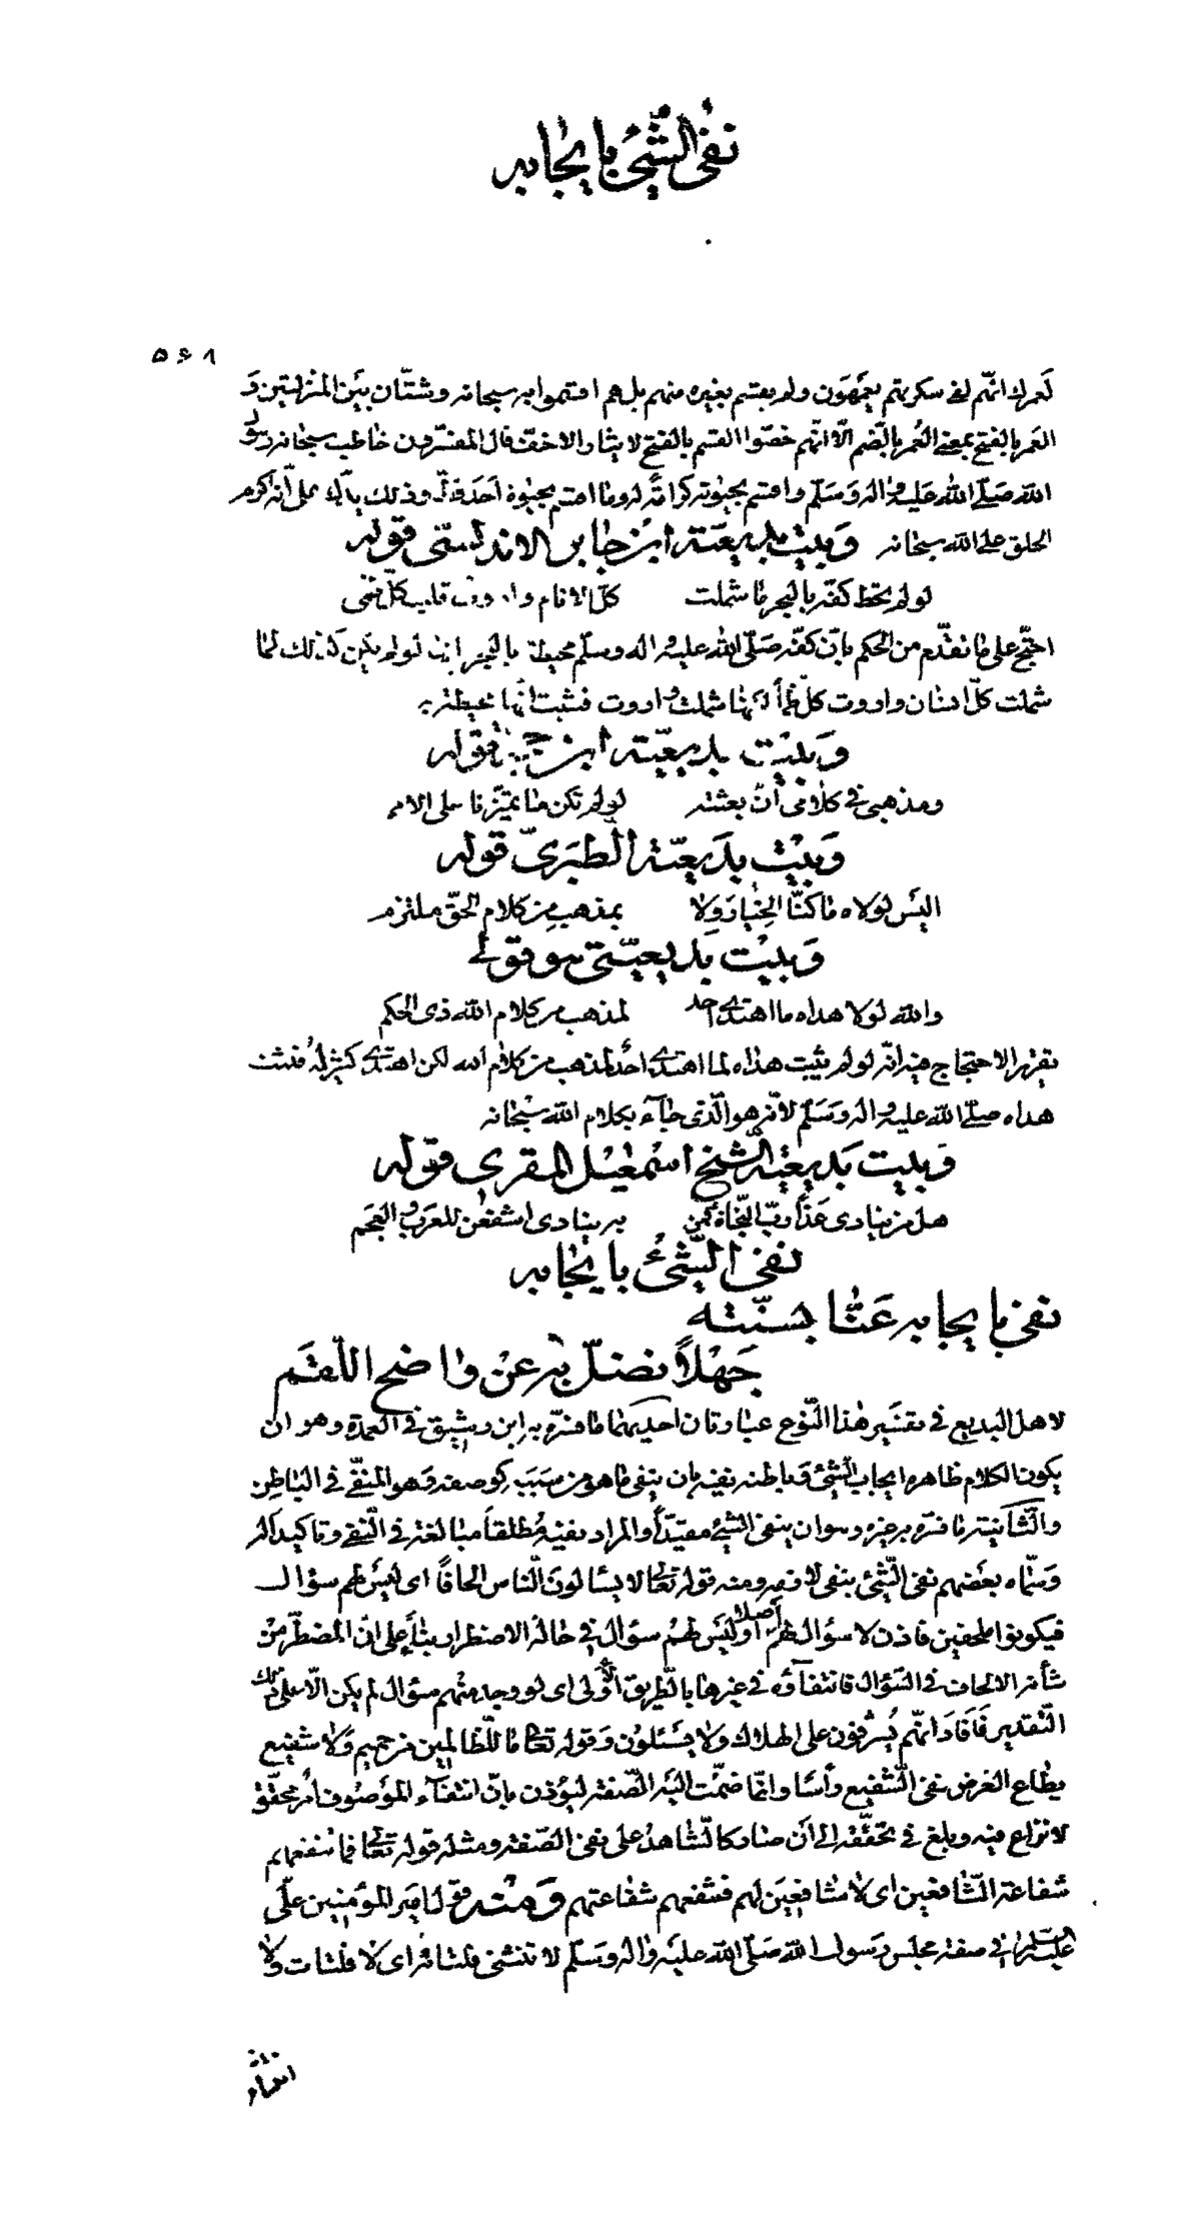 نفى الشّئ بايجابه
۵۶۱
لَعمرك انّهم لفى سكرتهم يعمَهُون ولم يقسم بغيره منهم بل هم اقسموا به سبحانه وشتّان بين المنزلتين وَ
العَمر بالفتح بمعنى العُمر بالضم الّا انّهم خصّوا القسم بالفتح لايثار الاخفّ قال المفسّرون خاطب سبحانه رسول
الله صلّى الله عليه واله وسلّم واقسم بحيوته كرامةً له وما اقسم بحيوة احد قطّ وذلك يدلّ على أنّه اكرم
الخلق على الله سبحانه وَبيت بديعيّة ابن جابر الاندلسى قوله
لو لم تحط كفّه بالبحر ما شملت كلّ الانام واروت قلب كلّ ظمى
احتجّ على ما تقدّم من الحكم بانّ كفّه صلّى الله عليه واله وسلّم محيطة بالبحر لو لم يكن كذلك لما
شملت كلّ انسان واروت كلّ ظمأ لكنها شملت واروت فثبت انّها محيطة به
وَبَيت بديعيّة ابن حجّة قوله
ومذهبى فى كلامى أنّ بعثته لو لم تكن ما تميّزنا على الامم
وَبَيْت بدَيعيّة الطبَرىّ قوله
اليَس لولاه ما كنّا الخيار وَلا بمذهب من كلام الحقّ ملتزم
وَبيْت بديعيّتى هو قولى
والله لولا هداه ما اهتدى احد لمذهب من كلام الله ذى الحكم
تقرير الاحتجاج فيه انّه لو لم يثبت هداه لما اهتدى أحد لمذهب من كلام الله لكن اهتدى كثير له فثبت
هداه صلّى الله عليه واله وسَلّم لانّه هو الّذى جاء بكلام الله سبحانه
وَبيت بَديعيّة الشّيخ اسمعيل المقرى قوله
هل من ينادى غداً ربّ النجاة كمن به ينادى اشفعن للعرَب والعجَم
نفى الشّئ بايجابه
نفى بايجابه عَنّا بسنّته
جَهْلاً نضلّ به عَن واضح اللّقَم
لاهل البديع فى تفسير هذا النّوع عبارتان احديهما ما فسّره به ابن رشيق فى العمدة وهو ان
يكون الكلام ظاهره ايجاب الشّئ وَباطنه نفيه بان ينفى ما هو من سَبَبه كوصفه وَهو المنفىّ فى البَاطِن
والثّانية ما فسّره به غيره وهو ان ينفى الشّئ مقيّداً والمراد نفيه مُطلقاً مبالغة فى النّفى وتاكيدا له
وَسمّاه بعَضهم نفى الشّئ بنفى لازمه ومنه قوله تعالى لا يسئلون النّاس الحافاً اى ليَس لهم سؤال
فيكونوا ملحفين فاذن لا سؤال لهم اصلا او ليَس لهُم سؤال فى حالة الاضطرار بناءً على انّ المضطرّ من
شأنه الالحاف فى السّؤال فانتفاؤه فى غيرها بالطّريق الأولى اى لو وجد منهم سؤال لم يكن الّا على ذلك
التّقدير فَافادَ انّهم يُشرفون على الهلاك ولا يسَئلُون وَقوله تعالى ما للظالمين من حميم وَلا شفيع
يطاع الغرض نفى الشّفيع رأسًا وانّما ضمّت اليه الصّفة ليؤذن بانّ انتفاء المَوصوف امر محقّق
لا نزاع فيه وبلغ فى تحقّقه الى أن صار كالشّاهد على نفى الصّفة ومثله قوله تعالى فما تنفعهم
شفاعة الشّافعين اى لا شافعِين لهم فتنفعهم شفاعتهم وَمنه قول امَير المؤمنين علىّ
عليه السّلام فى صفة مجلس رَسول الله صلّى الله عليه واله وسَلّم لا تنثى فلتاته اى لا فلتات ولا